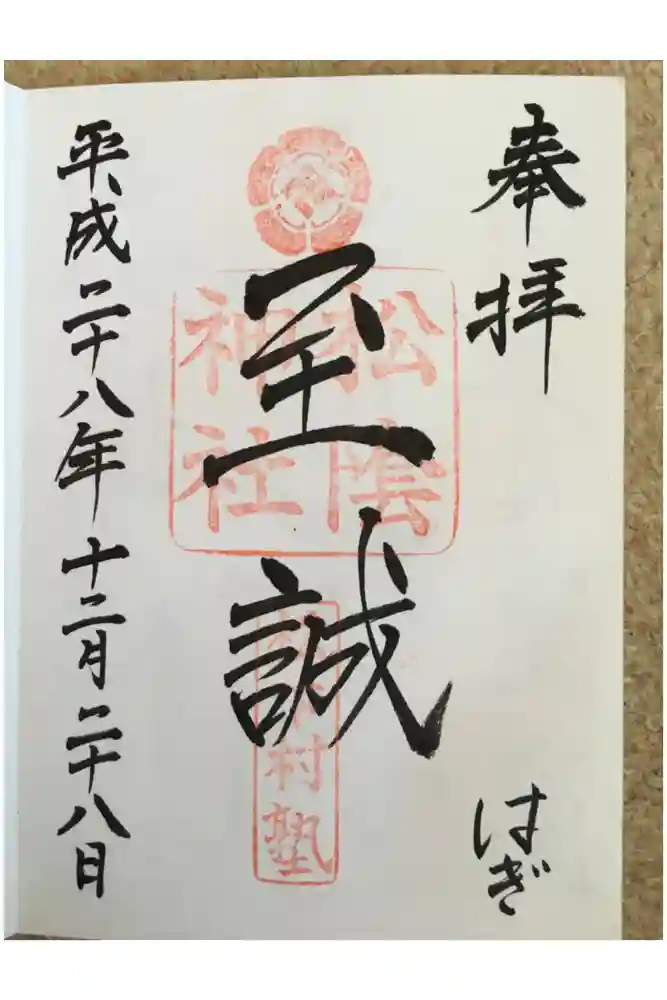 奉拝
はぎ
至誠
松陰
神社
松下村塾
平成二十八年十二月二十八日